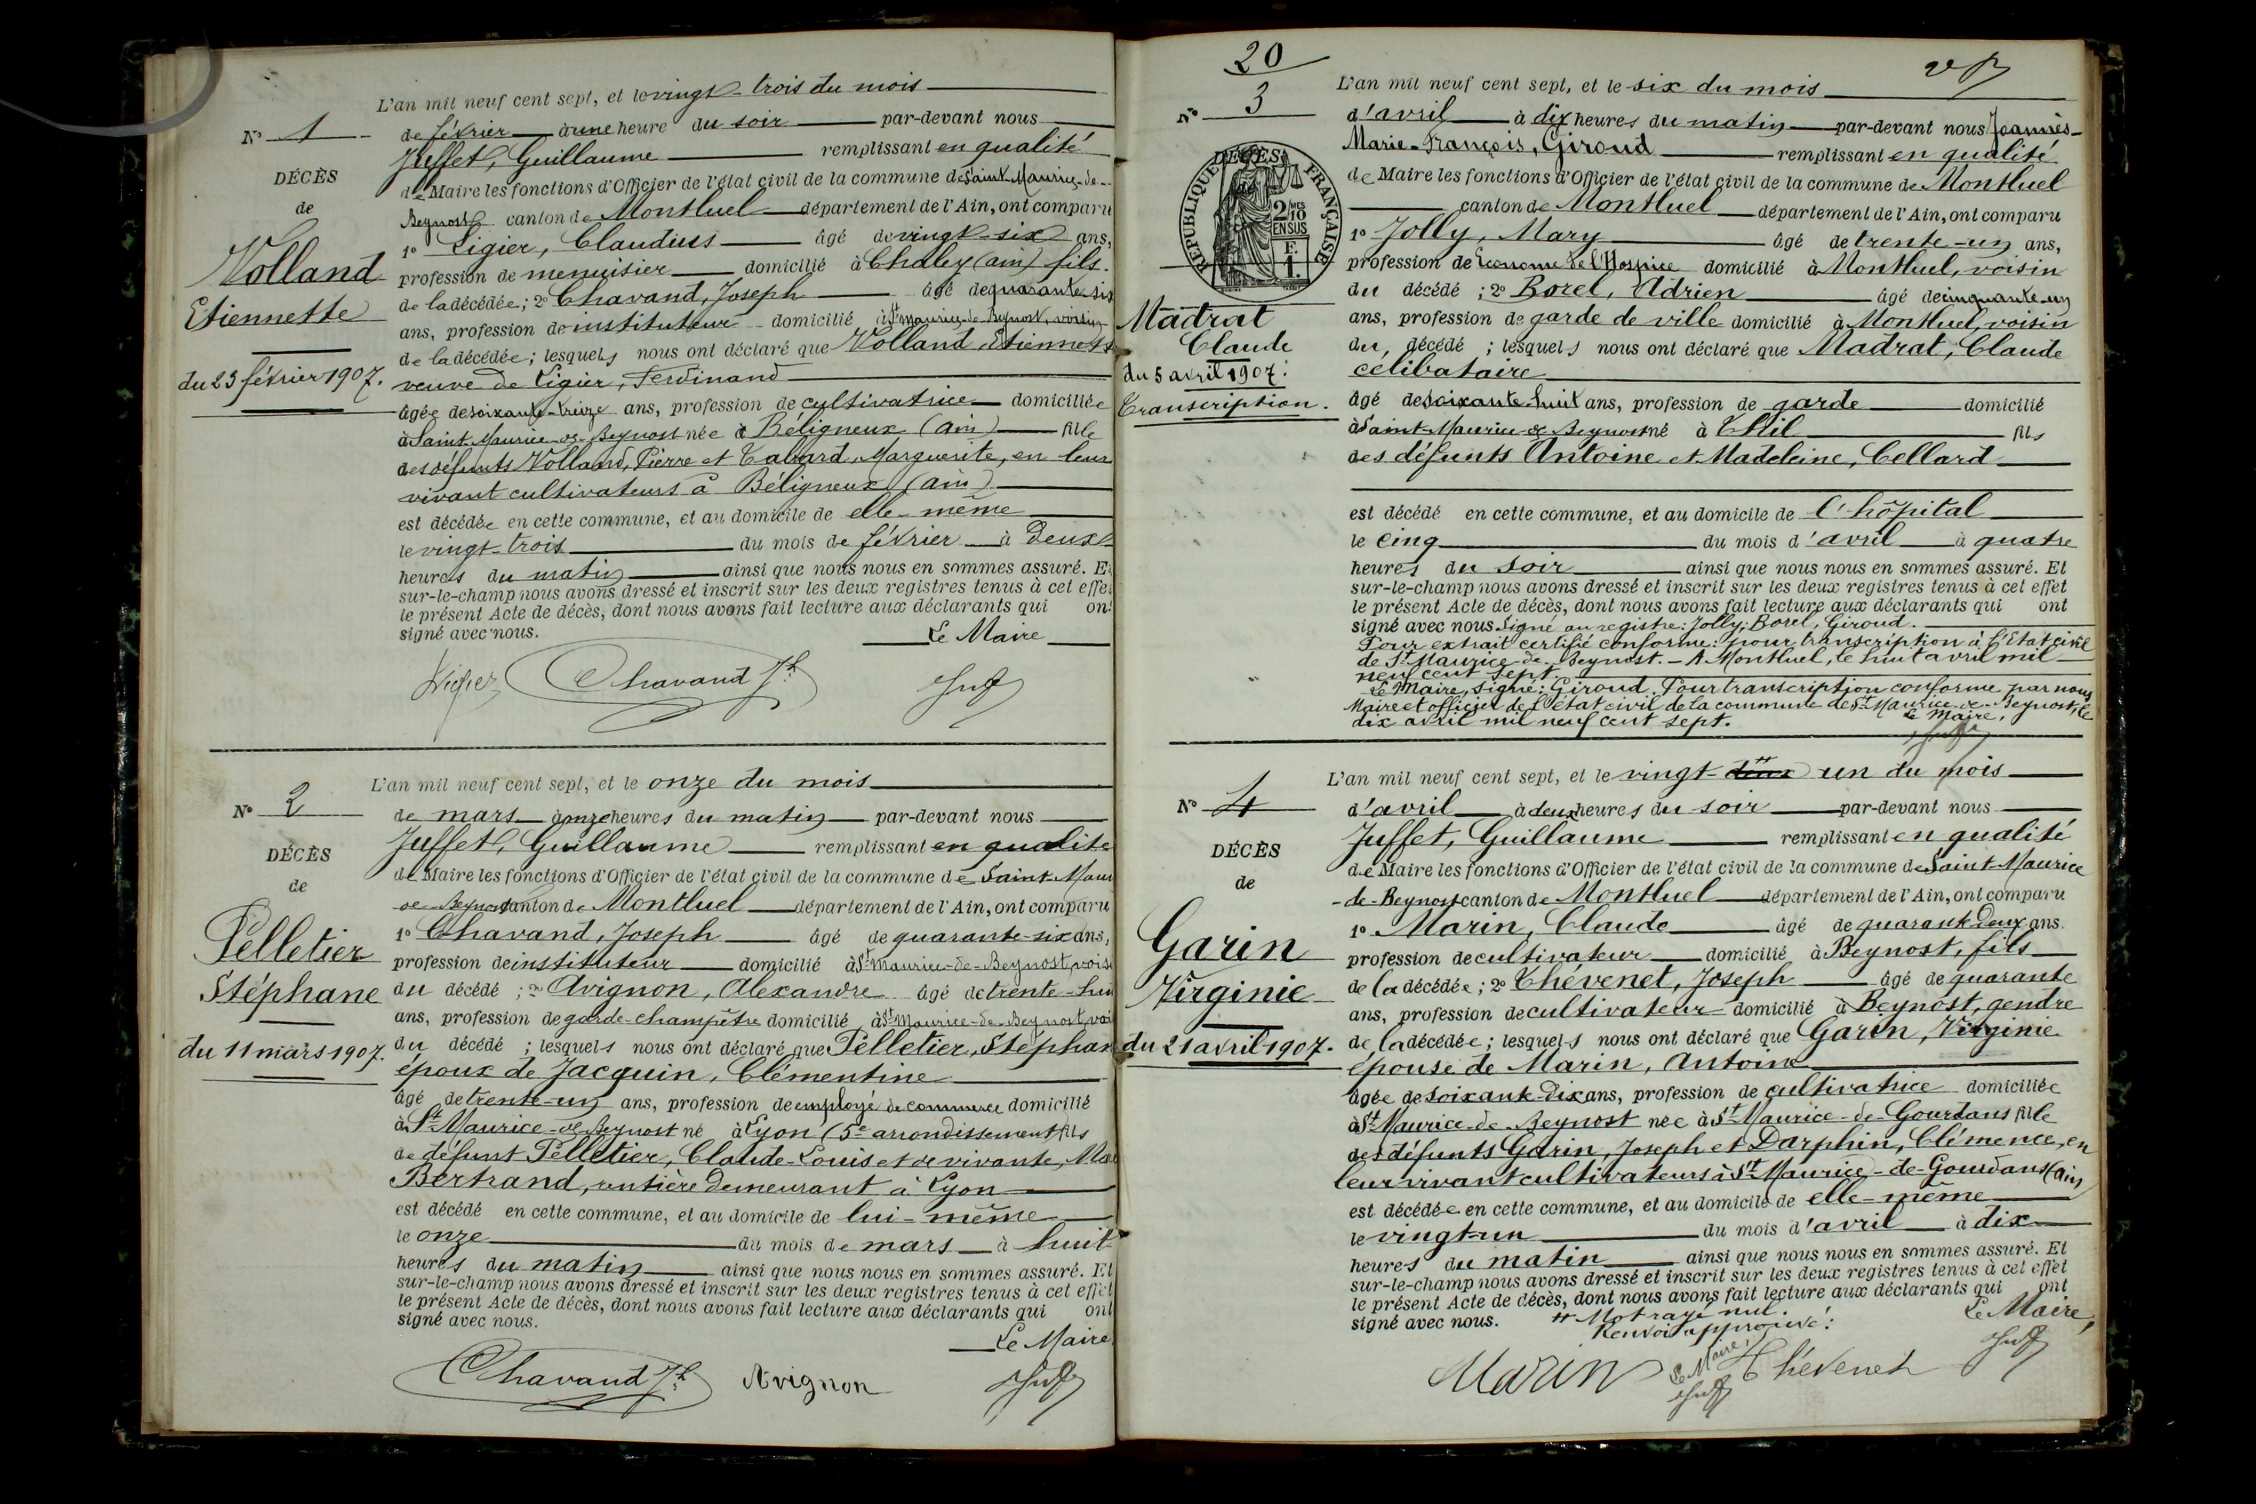 L'an mil neuf cent sept, et le vingt-trois du mois
N° 1
de février à une heure du soir par-devant nous
Juffet, Guillaume remplissant en qualité
DÉCÈS
de Maire les fonctions d'Officier de l'état civil de la commune de Saint-Maurice-de-
de
Beynost canton de Montluel département de l'Ain, ont comparu
1° Ligier, Claudius âgé de vingt-six ans,
Volland
profession de menuisier domicilié à Chaley (ain) fils
de la décédée; 2° Chavand, Joseph âgé de quarante-six
Etiennette
ans, profession de instituteur domicilié à St Maurice-de-Beynost, voisin
de la décédée; lesquels nous ont déclaré que Volland, Etiennette
du 23 février 1907.
veuve de Ligier, Ferdinand
âgée de soixante-treize ans, profession de cultivatrice domiciliée
à Saint-Maurice-de-Beynost née à Béligneux (ain) fille
des défunts Volland, Pierre et Cabard, Marguerite, en leur
vivant cultivateurs à Béligneux (ain)
est décédée en cette commune, et au domicile de elle-même
le vingt-trois du mois de février à deux
heures du matin ainsi que nous nous en sommes assuré. Et
sur-le-champ nous avons dressé et inscrit sur les deux registres tenus à cet effet
le présent Acte de décès, dont nous avons fait lecture aux déclarants qui ont
signé avec nous.
Le Maire
Ligier Chavand Jh Juffet
L'an mil neuf cent sept, et le onze du mois
N° 2
de mars à onze heures du matin par-devant nous
Juffet, Guillaume remplissant en qualité
DÉCÈS
de Maire les fonctions d'Officier de l'état civil de la commune de Saint-Maur
de
de-Beynost canton de Montluel département de l'Ain, ont comparu
1° Chavand, Joseph âgé de quarante-six ans,
Pelletier
profession de instituteur domicilié à St Maurice-de-Beynost, vois
Stéphane
du décédé; 2° Avignon, Alexandre âgé de trente-hui
ans, profession de garde-champêtre domicilié à St Maurice-de-Beynost, voi
du 11 mars 1907.
du décédé; lesquels nous ont déclaré que Pelletier, Stéphan
époux de Jacquin, Clémentine
âgé de trente-un ans, profession de employé de commerce domicilié
à St Maurice-de-Beynost né à Lyon (5e arrondissement) fils
de défunt Pelletier, Claude-Louis et de vivante, Ma
Bertrand, rentière demeurant à Lyon
est décédé en cette commune, et au domicile de lui-même
le onze du mois de mars à huit
heures du matin ainsi que nous nous en sommes assuré. Et
sur-le-champ nous avons dressé et inscrit sur les deux registres tenus à cet effet
le présent Acte de décès, dont nous avons fait lecture aux déclarants qui ont
signé avec nous.
Le Maire
Chavand Jh Avignon Juffet
20
L'an mil neuf cent sept, et le six du mois
N° 3
d'avril à dix heures du matin par-devant nous Joannès-
Marie-François, Giroud remplissant en qualité
RÉPUBLIQUE FRANÇAISE
DÉCÈS
2/10 MES
EN SUS
F.
1.
de Maire les fonctions d'Officier de l'état civil de la commune de Montluel
canton de Montluel département de l'Ain, ont comparu
1° Jolly, Mary âgé de trente-un ans,
profession de Econome de l'Hospice domicilié à Montluel, voisin
du décédé; 2° Borel, Adrien âgé de cinquante-un
Madrat
ans, profession de garde de ville domicilié à Montluel, voisin
Claude
du décédé; lesquels nous ont déclaré que Madrat, Claude
du 5 avril 1907.
célibataire
Transcription.
âgé de soixante-huit ans, profession de garde domicilié
à Saint-Maurice-de-Beynost né à Thil fils
des défunts Antoine et Madeleine, Cellard
est décédé en cette commune, et au domicile de l'hôpital
le cinq du mois d'avril à quatre
heures du soir ainsi que nous nous en sommes assuré. Et
sur-le-champ nous avons dressé et inscrit sur les deux registres tenus à cet effet
le présent Acte de décès, dont nous avons fait lecture aux déclarants qui ont
signé avec nous. Signé au registre: Jolly, Borel, Giroud.
Pour extrait certifié conforme: pour transcription à l'Etat civil
de St Maurice-de-Beynost. - A Montluel, le huit avril mil
neuf cent sept.
Le Maire, signé: Giroud. Pour transcription conforme par nous
Maire et officier de l'état civil de la commune de St Maurice-de-Beynost, le
dix avril mil neuf cent sept. Le Maire,
Juffet
L'an mil neuf cent sept, et le vingt-deux un du mois
N° 4
d'avril à deux heures du soir par-devant nous
Juffet, Guillaume remplissant en qualité
DÉCÈS
de Maire les fonctions d'Officier de l'état civil de la commune de Saint-Maurice
de
-de-Beynost canton de Montluel département de l'Ain, ont comparu
1° Marin, Claude âgé de quarante-deux ans.
Garin
profession de cultivateur domicilié à Beynost, fils
de la décédée; 2° Thévenet, Joseph âgé de quarante
Virginie
ans, profession de cultivateur domicilié à Beynost, gendre
du 21 avril 1907.
de la décédée; lesquels nous ont déclaré que Garin, Virginie
épouse de Marin, Antoine
âgée de soixante-dix ans, profession de cultivatrice domiciliée
à St Maurice-de-Beynost née à St Maurice-de-Gourdans fille
des défunts Garin, Joseph et Darphin, Clémence, en
leur vivant cultivateurs à St Maurice-de-Gourdans (ain)
est décédée en cette commune, et au domicile de elle-même
le vingt-un du mois d'avril à dix
heures du matin ainsi que nous nous en sommes assuré. Et
sur-le-champ nous avons dressé et inscrit sur les deux registres tenus à cet effet
le présent Acte de décès, dont nous avons fait lecture aux déclarants qui ont
signé avec nous. Mot rayé nul. Le Maire,
Renvoi approuvé:
Marin Le Maire, Juffet Thévenet Juffet